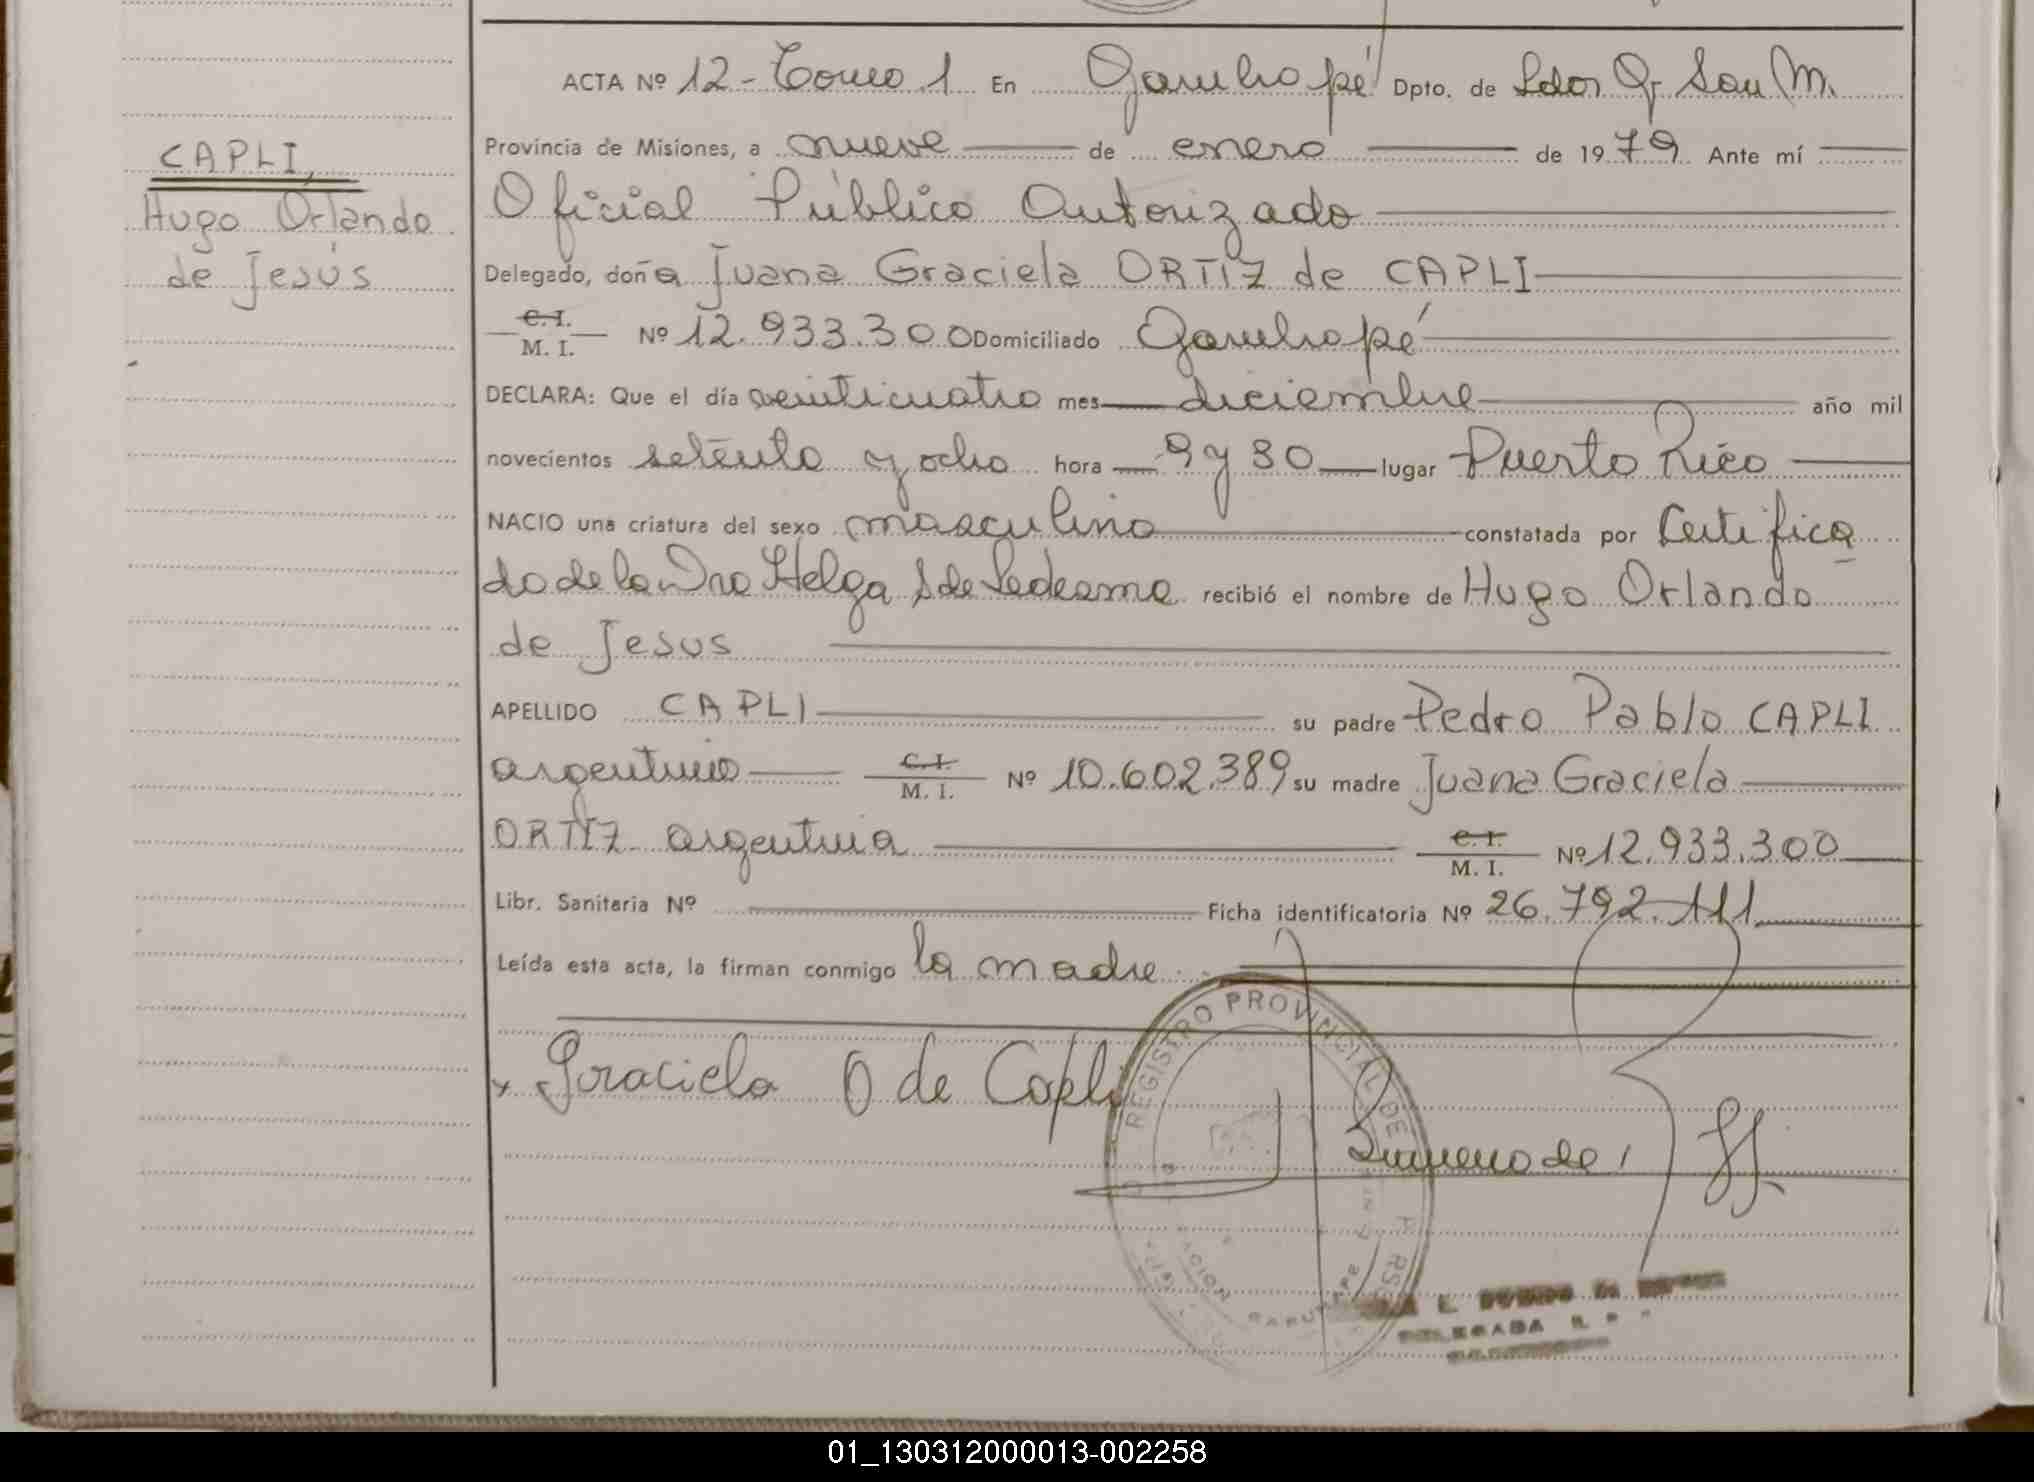 CAPLI,
Hugo Orlando
de Jesús
ACTA Nº 12 - Tomo 1 En Garuhapé Dpto. de Ldor G. San M.
Provincia de Misiones, a nueve de enero de 1979 Ante mí
Oficial Público Autorizado
Delegado, doña Juana Graciela ORTIZ de CAPLI
C. I.
M. I. Nº 12.933.300 Domiciliado Garuhapé
DECLARA: Que el día veinticuatro mes diciembre año mil
novecientos setenta y ocho hora 9 y 30 lugar Puerto Rico
NACIO una criatura del sexo masculino constatada por Certifica
do de la Dra Helga S de Ledesma recibió el nombre de Hugo Orlando
de Jesus
APELLIDO CAPLI su padre Pedro Pablo CAPLI
argentino C. I. M. I. Nº 10.602.389 su madre Juana Graciela
ORTIZ argentina C. I. M. I. Nº 12.933.300
Libr. Sanitaria Nº Ficha identificatoria Nº 26.792.111
Leída esta acta, la firman conmigo la madre
x Graciela O de Capli
REGISTRO PROVINCIAL DE
DELEGADA
01_130312000013-002258